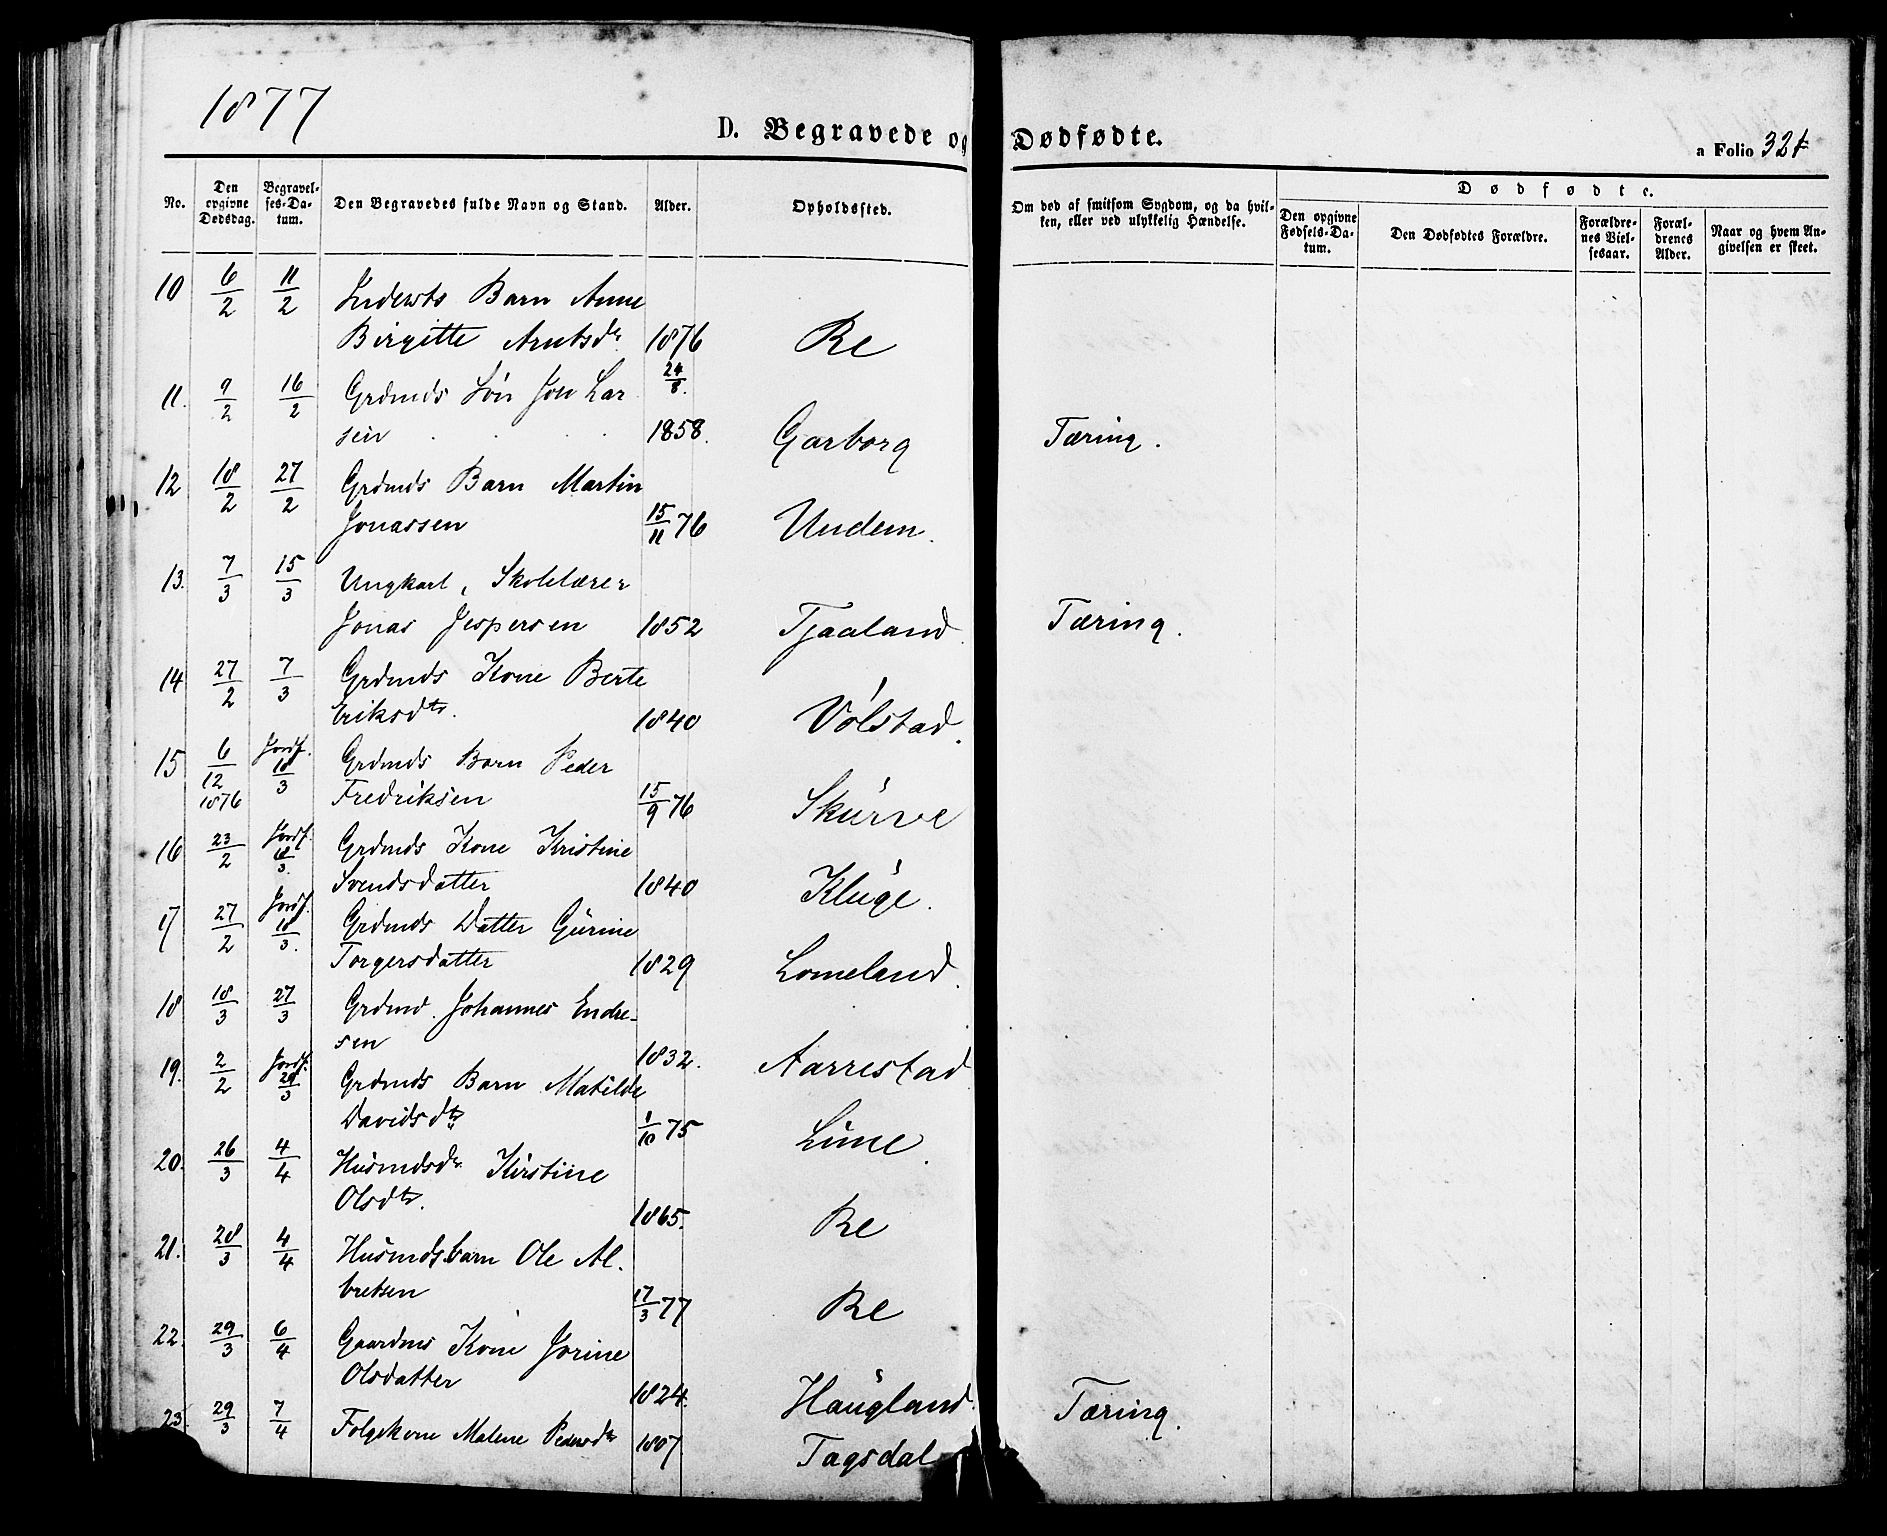 1877
D. Begravede og Dødfødte.
a Folio 321
No.
Den opgivne Dødsdag.
Begravelses-Datum.
Den Begravedes fulde Navn og Stand.
Alder.
Opholdssted.
Om død af smitsom Sygdom, og da hvilken, eller ved ulykkelig Hændelse.
Dødfødte.
Den opgivne Fødsels-Datum.
Den Dødfødtes Forældre.
Forældrenes Vielsesaar.
Forældrenes Alder.
Naar og hvem Angivelsen er skeet.
10 6/2 11/2 Inderts Barn Anne
Birgitte Arntsdr. 1876 Re
24/8.
11. 9/2 16/2 Grdmds Søn Jon Lar
sen 1858. Garborg Tæring.
12 18/2 27/2 Grdmds Barn Martin
Jonassen 15/11 76 Undem.
13. 7/3 15/3 Ungkarl, Skolelærer
Jonas Jespersen 1852 Tjaaland. Tæring.
14 27/2 7/3 Grdmds Kone Berte
Eriksdtr. 1840 Vølstad.
15 6/12 1876 Jordf. 18/3 Grdmds Barn Peder
Fredriksen 15/9 76 Skurve
16 23/2 Jordf. 18/3. Grdmds Kone Kristine
Svendsdatter 1840 Kluge.
17 27/2 Jordf. 18/3. Grdmds Datter Gurine
Torgersdatter 1829 Lomeland.
18 18/3 27/3 Grdmd. Johannes Endre-
sen 1832. Aarrestad
19. 2/2 Jordf. 29/3 Grdmds Barn Matilde
Davidsdtr 1/10 75 Lime.
20. 26/3 4/4 Husmdsdr. Kirstine
Olsdtr. 1865. Re
21. 28/3 4/4 Husmdsbarn Ole Al.
bretsen 17/3 77 Re
22. 29/3 6/4 Gaardms Kone Jorine
Olsdatter 1824. Haugland. Tæring.
23. 29/3 7/4 Folgekone Malene Pedersdtr 1807. Tagsdal